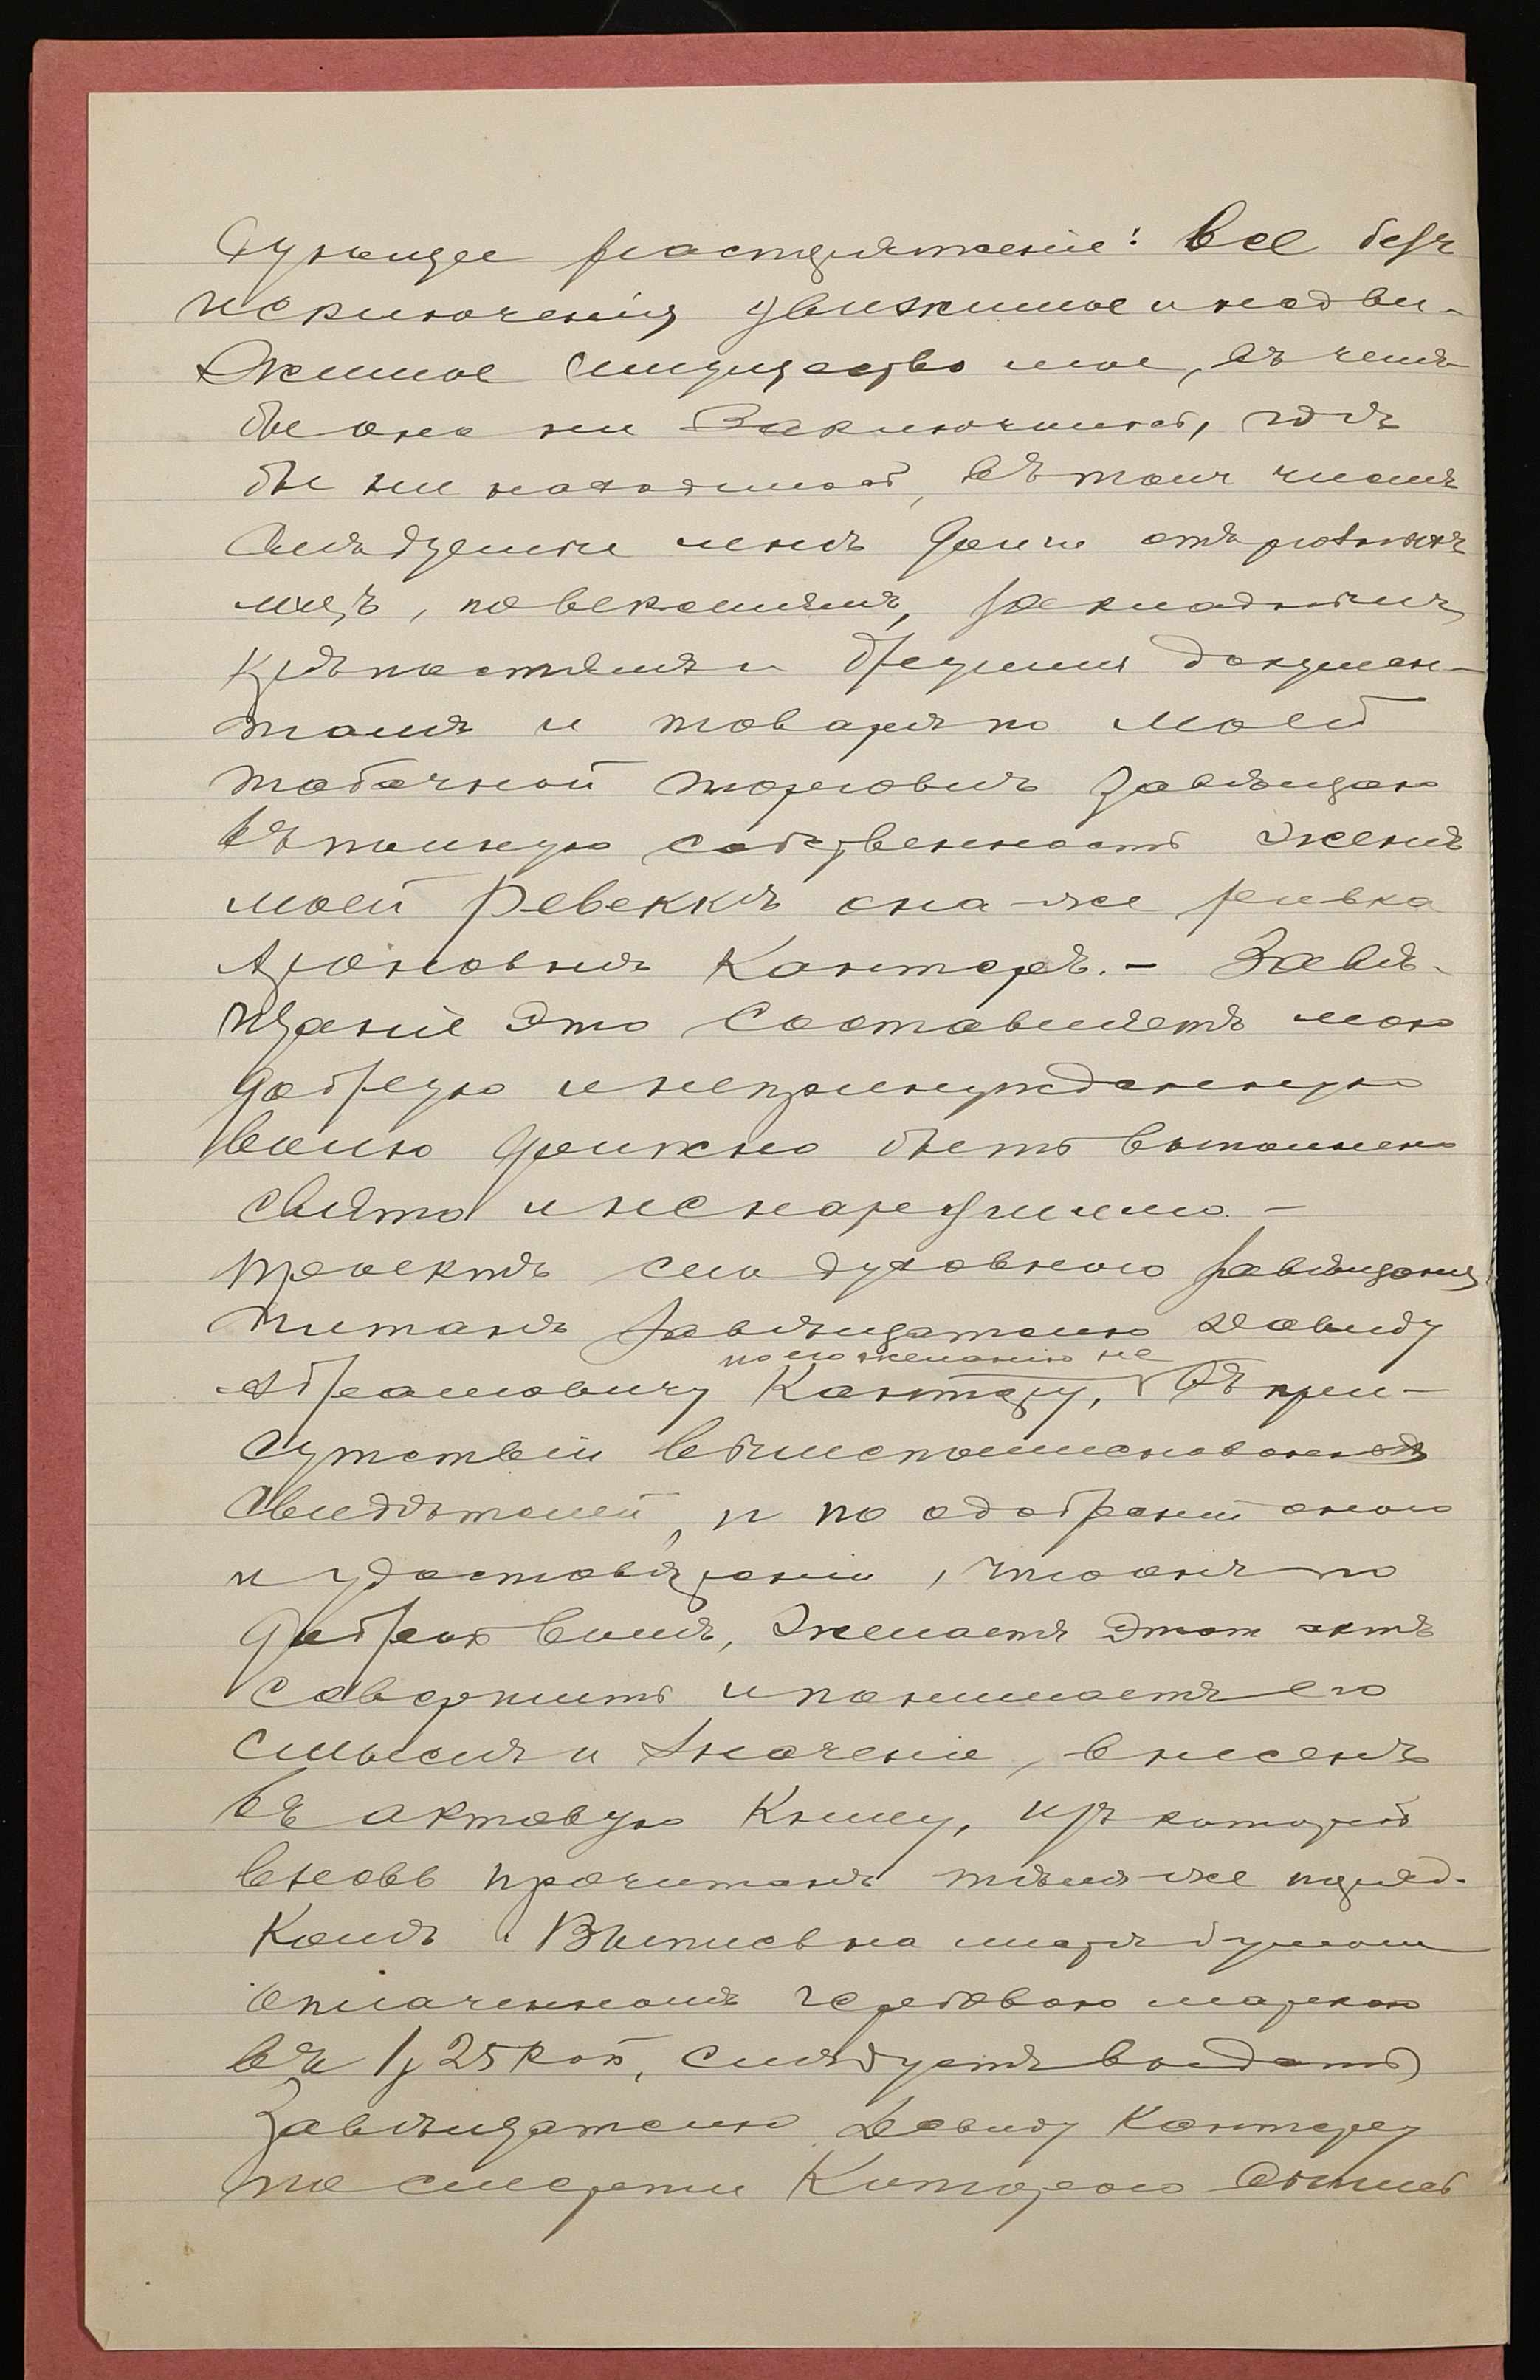 дующее распоряженiе: Все безъ
исключенiя движимое и недви-
жимое имущество мое, въ чемъ
бы оно ни заключилось, гдѣ
бы ни находилось, въ томъ числѣ
слѣдуемые мнѣ долги отъ разныхъ
лицъ, по векселямъ, закладнымъ
крѣпостямъ и другимъ докумен-
тамъ и товаръ по моей
табачной торговлѣ завѣщаю
въ полную собственность женѣ
моей Ревеккѣ она-же Ривка
Ароновнѣ Канторъ. - Завѣ-
щанiе это составляетъ мою
добрую и непринужденную
волю должно быть выполнено
свято и ненарушимо. -
Проектъ сего духовнаго завѣщанiя
читанъ завѣщателю Давиду
по его желанiю не
Абрамовичу Кантору, въ при-
сутствiи вышепоименованныхъ
свидѣтелей, и по одобренiи онаго
и удостовѣренiи, что онъ по
доброй волѣ, желаетъ этот актъ
совершить и понимаетъ его
смыслъ и значенiе, внесенъ
въ актовую книгу, изъ которой
вновь прочитанъ тѣмъ-же поряд-
комъ. Выпись на листѣ бумаги
оплаченномъ гербовою маркою
въ 1 р 25 коп, слѣдуетъ выдать
завѣщателю Давиду Кантору
по смерти котораго